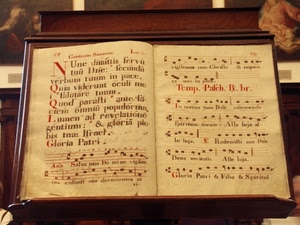 Canticum Simeonis
Nunc dimittis servũ
tuũ Dñe: secundũ
verbum tuum in pace.
Quia viderunt oculi mei
salutare tuum.
Quod parasti: ante faciem
omniũ populorum.
Lumen ad revelationẽ
gentium: & gloriã ple
bis tuæ Israel.
Gloria Patri
Ana
Salva nos Dñe vigilan
tes custodi nos dormientes ut
vigilemus cum Christo &
mus in pace
Temp. Pasch. B. br.
In manus tuas Dñe
spiritum meum Alle luja
le luja. V. Redemisti nos Dñe
Deus veritatis Alle luja.
Gloria Patri & Filio & Spiritui